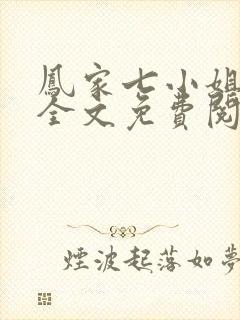 鳳家七小姐
全文免費閱
煙波起落如夢